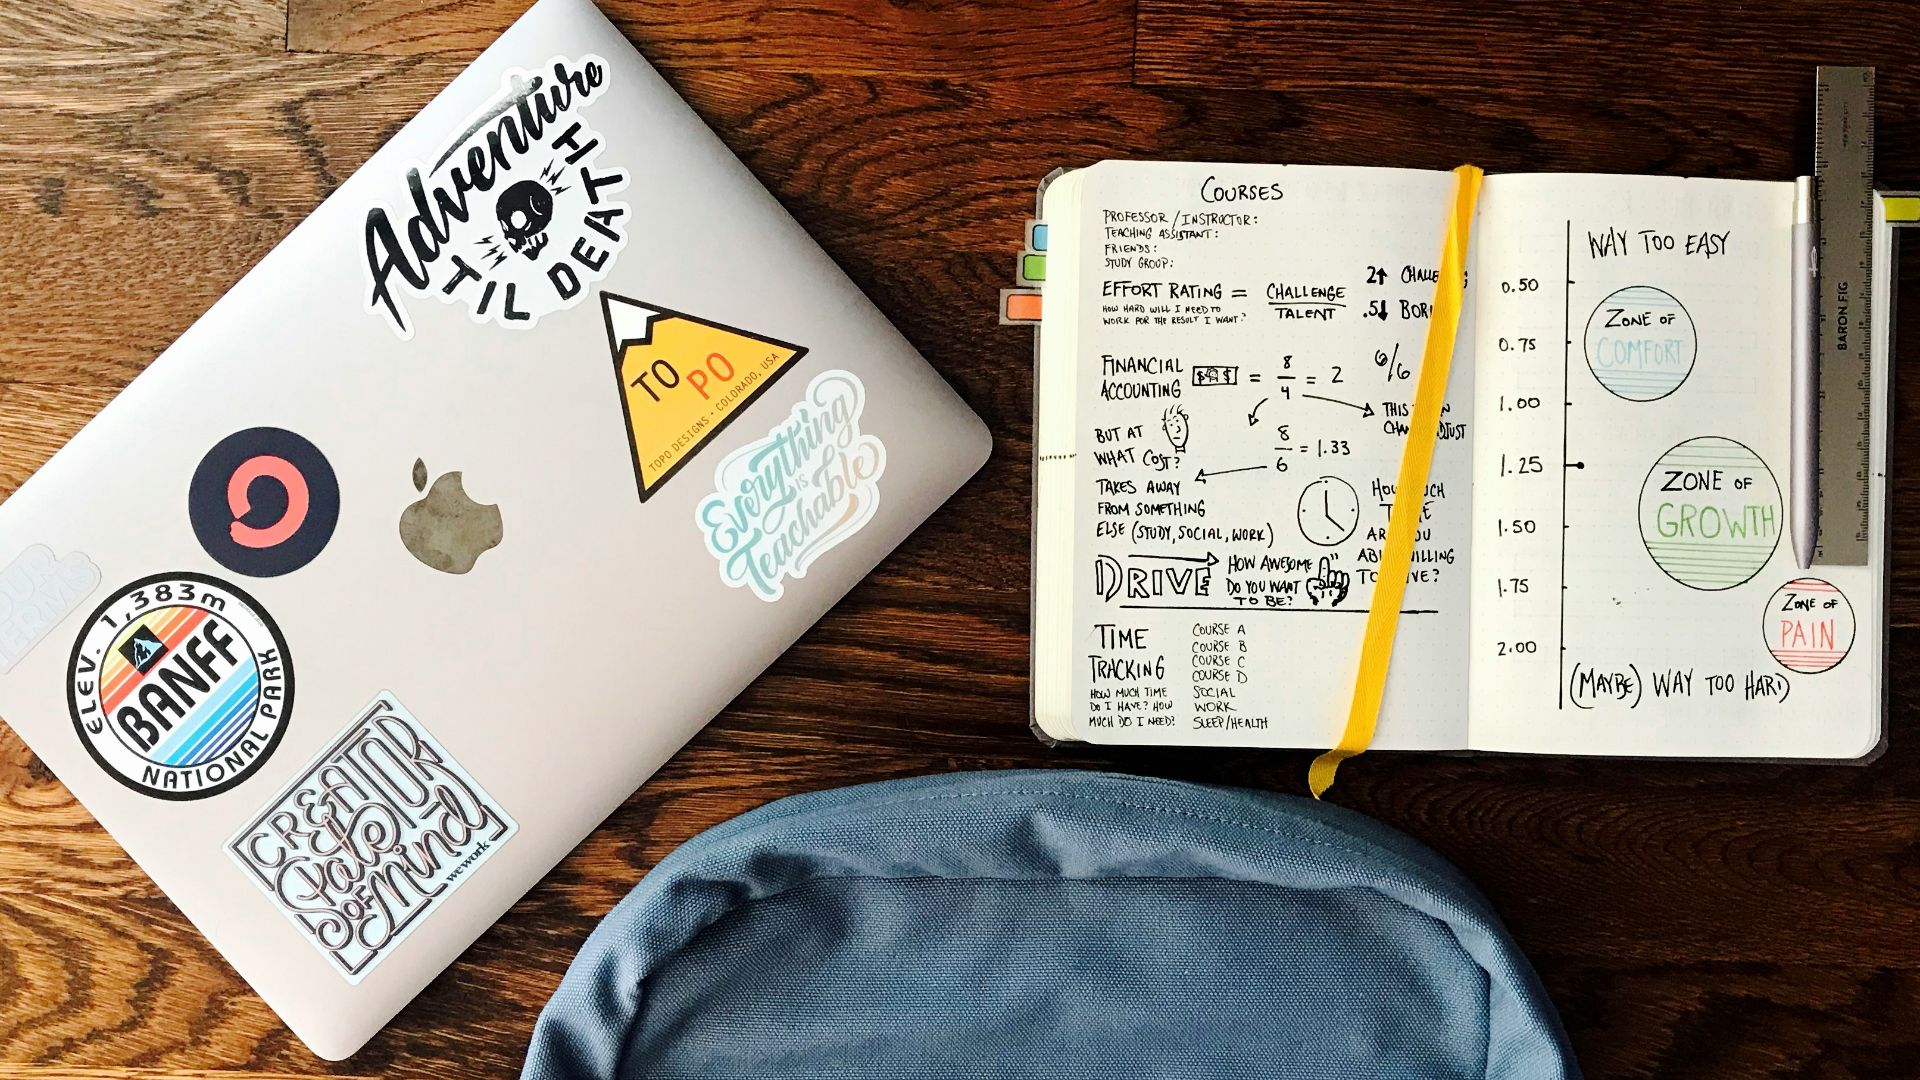 Adventure
TIL DEATH
TO PO
TOPO DESIGNS • COLORADO, USA
Everything
is
Teachable
ELEV. 1,383m
BANFF
NATIONAL PARK
CREATOR
State
OF
Mind
wework
COURSES
PROFESSOR / INSTRUCTOR:
TEACHING ASSISTANT:
FRIENDS:
STUDY GROUP:
EFFORT RATING = CHALLENGE
TALENT
HOW HARD WILL I NEED TO
WORK FOR THE RESULT I WANT?
2↑
.5↓
FINANCIAL
ACCOUNTING
$ $ = 8
4
= 2
6/6
THIS
BUT AT
WHAT COST?
8
6
= 1.33
TAKES AWAY
FROM SOMETHING
ELSE (STUDY, SOCIAL, WORK)
ARE
TO
DRIVE
HOW AWESOME
DO YOU WANT
TO BE?
TIME
TRACKING
HOW MUCH TIME
DO I HAVE? HOW
MUCH DO I NEED?
COURSE A
COURSE B
COURSE C
COURSE D
SOCIAL
WORK
SLEEP/HEALTH
WAY TOO EASY
0.50
0.75
1.00
1.25
1.50
1.75
2.00
ZONE OF
COMFORT
ZONE OF
GROWTH
ZONE OF
PAIN
(MAYBE) WAY TOO HARD
BARON FIG